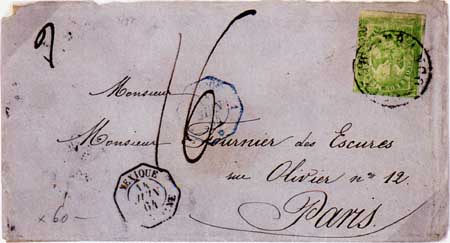 16
Monsieur
Monsieur Fournier des Escures
rue Olivier nº 12.
Paris.
MEXIQUE
14
JUIN
64
x 60 -